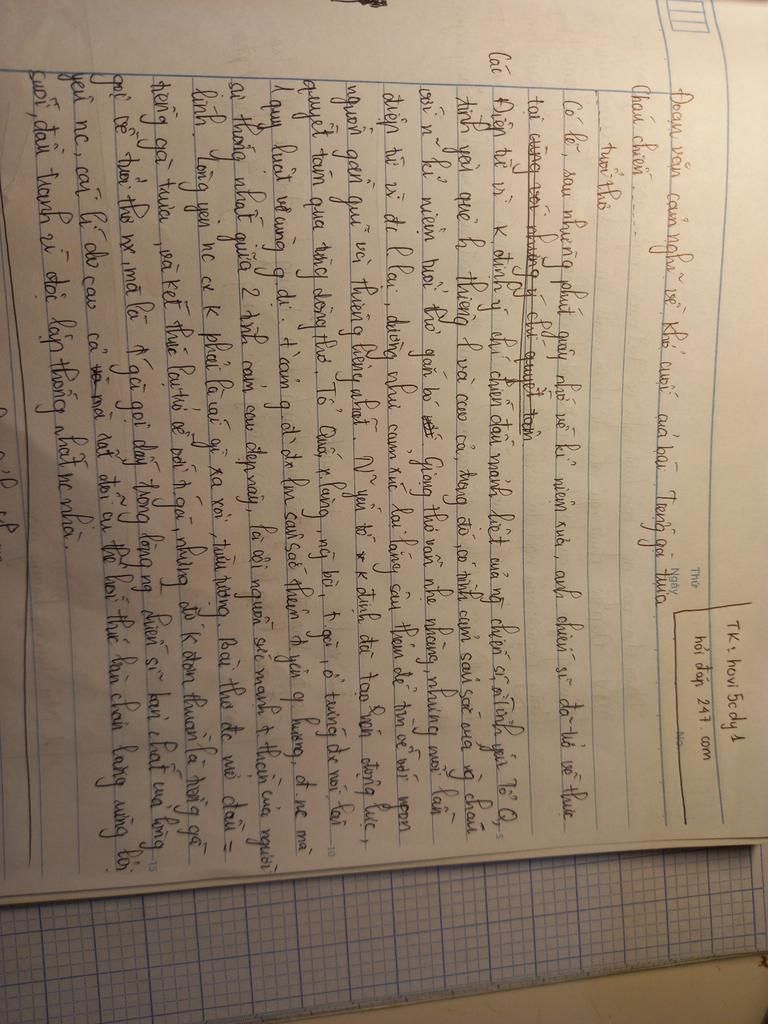 TK: hovi5cdy1
hỏi đáp 247.com
Thứ
Ngày
No.
Đoạn văn cảm nghĩ về khổ cuối của bài Tiếng gà trưa
Cháu chiến ........
........ tuổi thơ
Có lẽ, sau những phút giây nhớ về kỉ niệm xưa, anh chiến sĩ đã trở về thực
tại cùng với những ý chí quyết tâm.
Các Điệp từ vì k định ý chí chiến đấu mãnh liệt của ng chiến sĩ, vì Tình yêu Tổ Q, 5
tình yêu quê h thiêng l và cao cả, trong đó, có tình cảm sâu sắc của ng cháu
với n~ kỉ niệm tuổi thơ gắn bó Giọng thơ vẫn nhẹ nhàng, nhưng mỗi lần
điệp từ vì đc l lại, dường như cảm xúc lại lắng sâu thêm để tìm về với ngọn
nguồn gần gũi và thiêng liêng nhất. N~ yếu tố k định đã tạo nên động lực,
quyết tâm qua từng dòng thơ. Tổ Quốc, x làng, ng bà, t gà, ổ trứng để nói lên 10
1 quy luật vô cùng g dị. t cảm g đ đã làm sâu sắc thêm t yêu q hương, đ nc mà
sự thống nhất giữa 2 tình cảm cao đẹp này, là cội nguồn sức mạnh t thần của người
lính. Lòng yêu nc k phải là cái gì xa xôi, trừu tượng. Bài thơ đc mở đầu =
tiếng gà trưa, và kết thúc lại trở về với t gà, nhưng đó k đơn thuần là tiếng gà
gọi về tuổi thơ nx, mà là t gà gọi dậy trong lòng ng chiến sĩ bản chất của lòng 15
yêu nc, cái lí do cao cả mà rất đỗi cụ thể hối thúc bàn chân băng rừng lội
suối, đấu tranh vì độc lập thống nhất nc nhà.